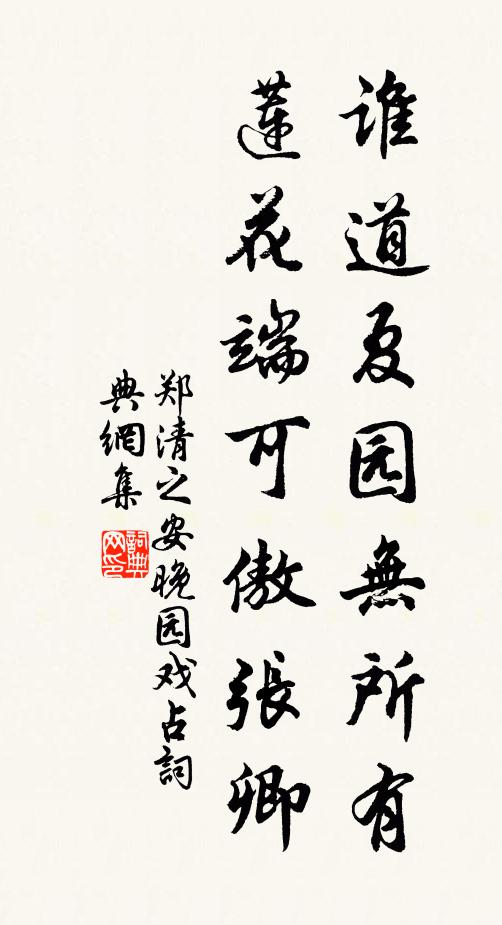 谁道夏园無所有
蓮花端可傲張卿
郑清之安晚园戏占詞
典網集
詞典网印